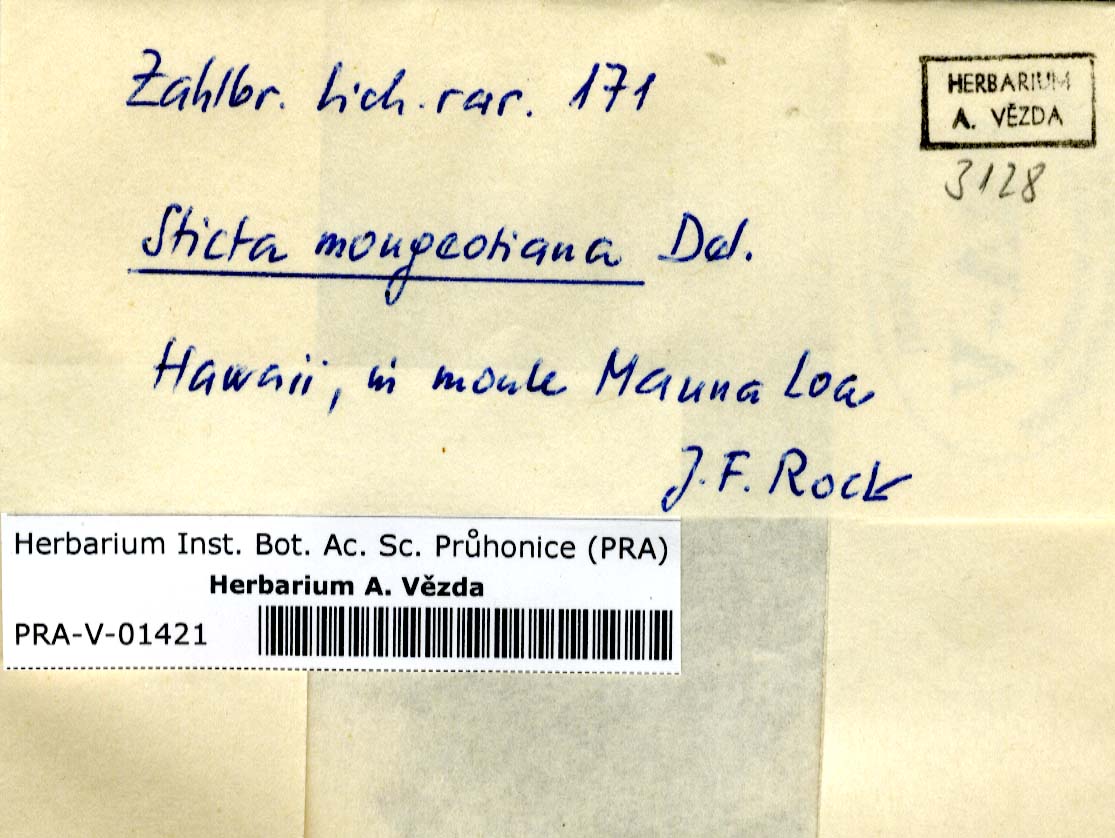 Zahlbr. Lich. rar. 171
HERBARIUM
A. VĚZDA
3128
Sticta mougeotiana Del.
Hawaii, in monte Mauna Loa
J. F. Rock
Herbarium Inst. Bot. Ac. Sc. Průhonice (PRA)
Herbarium A. Vězda
PRA-V-01421